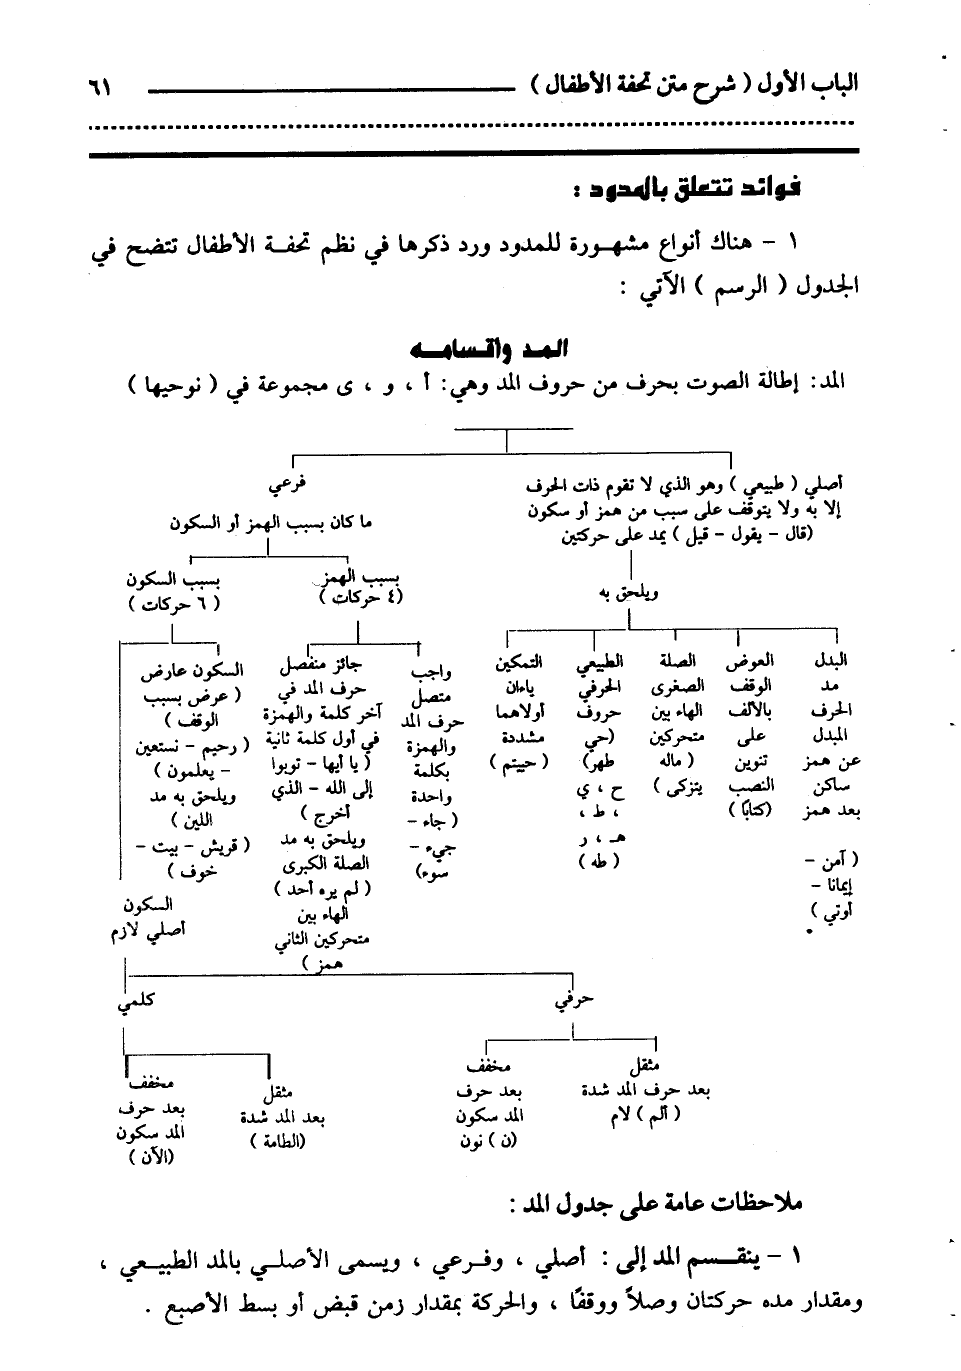 الباب الأول ( شرح متن تحفة الأطفال )
٦١
فوائد تتعلق بالمدود :
١ - هناك أنواع مشهورة للمدود ورد ذكرها في نظم تحفة الأطفال تتضح في
الجدول ( الرسم ) الآتي :
المد وأقسامه
المد: إطالة الصوت بحرف من حروف المد وهي: أ ، و ، ى مجموعة في ( نوحيها )
أصلي ( طبيعي ) وهو الذي لا تقوم ذات الحرف
إلا به ولا يتوقف على سبب من همز أو سكون
(قال - يقول - قيل ) يمد على حركتين
ويلحق به
البدل
مد
الحرف
المبدل
عن همز
ساكن
بعد همز
( آمن -
إيمانا -
أوتي )
العوض
الوقف
بالألف
على
تنوين
النصب
(كتابًا )
الصلة
الصغرى
الهاء بين
متحركين
( ماله
يتزكى )
الطبيعي
الحرفي
حروف
(حي
طهر)
ح ، ي
، ط ،
هـ ، ر
( طه )
التمكين
ياءان
أولاهما
مشددة
( حييتم )
فرعي
ما كان بسبب الهمز أو السكون
بسبب الهمز
(٤ حركات )
واجب
متصل
حرف المد
والهمزة
بكلمة
واحدة
( جاء -
جيء -
سوء)
جائز منفصل
حرف المد في
آخر كلمة والهمزة
في أول كلمة ثانية
( يا أيها - توبوا
إلى الله - الذي
أخرج )
ويلحق به مد
الصلة الكبرى
( لم يره أحد )
الهاء بين
متحركين الثاني
همز )
بسبب السكون
( ٦ حركات )
السكون عارض
( عرض بسبب
الوقف )
( رحيم - نستعين
- يعلمون )
ويلحق به مد
اللين )
( قريش - بيت -
خوف )
السكون
أصلي لازم
حرفي
مثقل
بعد حرف المد شدة
( ألم ) لام
مخفف
بعد حرف
المد سكون
(ن ) نون
كلمي
مثقل
بعد المد شدة
(الطامة )
مخفف
بعد حرف
المد سكون
(الآن )
ملاحظات عامة على جدول المد :
١ - ينقسم المد إلى : أصلي ، وفرعي ، ويسمى الأصلي بالمد الطبيعي ،
ومقدار مده حركتان وصلاً ووقفًا ، والحركة بمقدار زمن قبض أو بسط الأصبع .